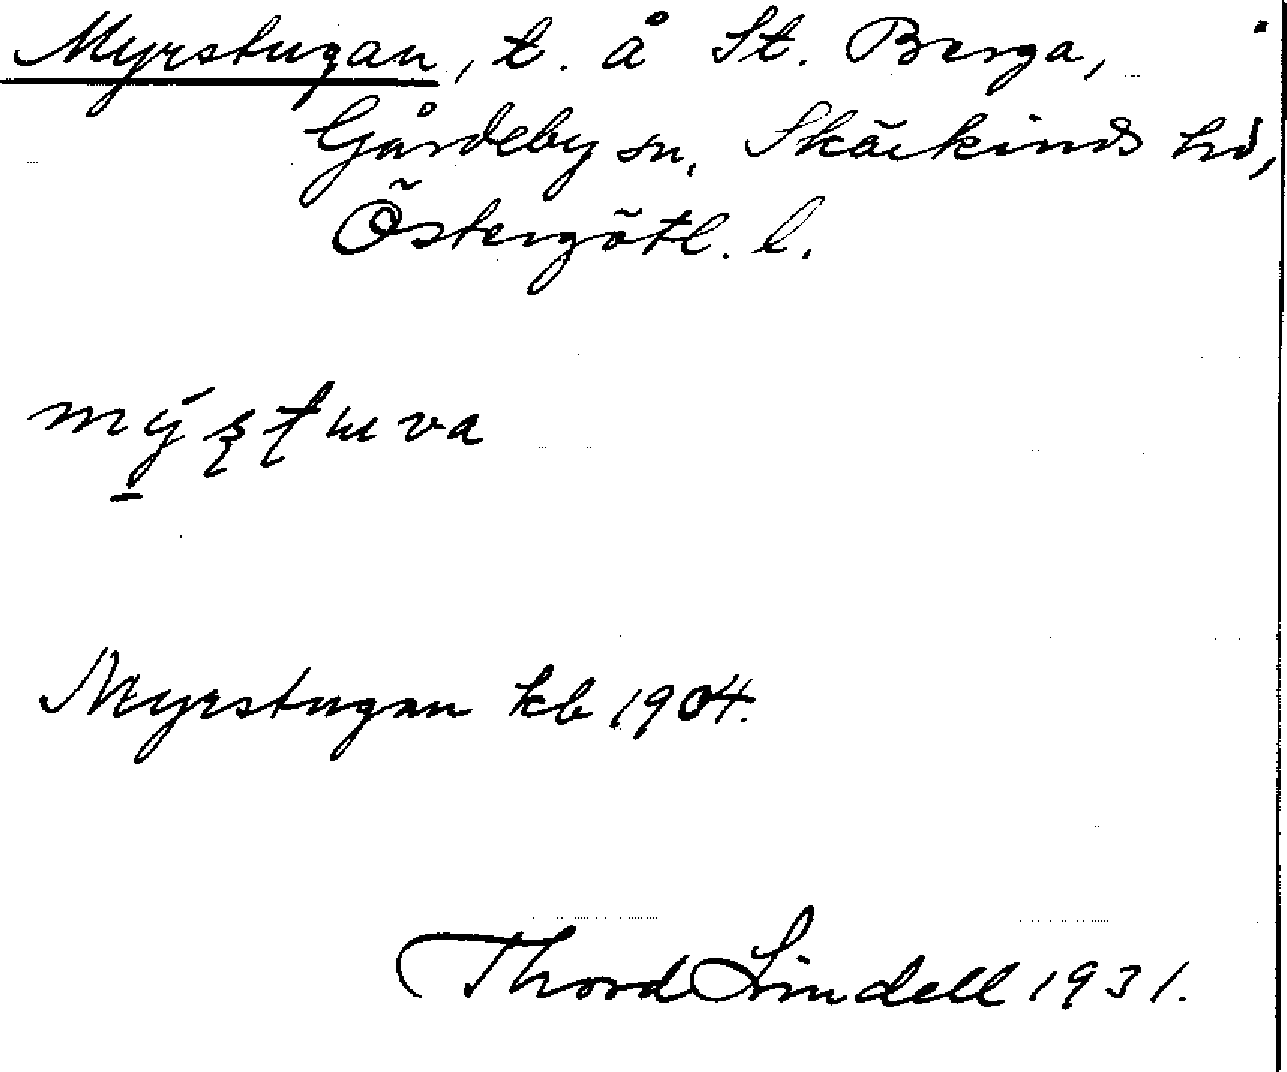 Myrstugan, t. å St. Berga,
Gårdeby sn, Skärkinds hd,
Östergötl. l.
Myrstugan kb 1904.
Thord Lindell 1931.